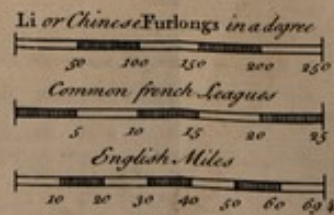 Li or Chinese Furlongs in a degree
50 100 150 200 250
Common french Leagues
5 10 15 20 25
English Miles
10 20 30 40 50 60